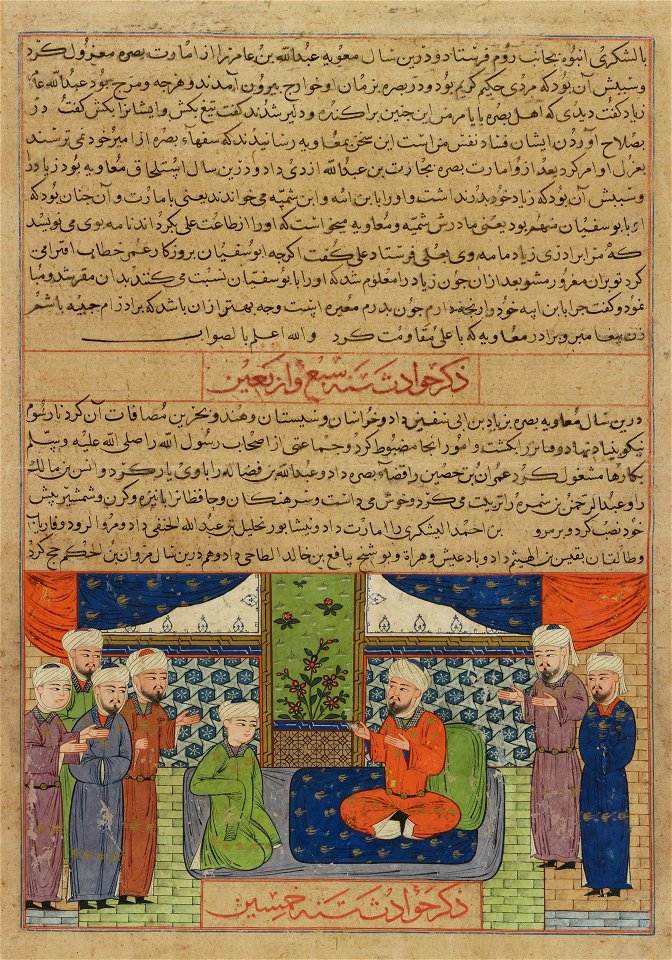 بالشکری انبوه بجانب روم فرستاد و درین سال معویه عبدالله بن عامر را از امارت بصره معزول کرد
و سببش آن بود که مردی حکیم کریم بود و در بصره بزمان او خوارج بیرون آمدند و هرج و مرج بود عبدالله عامر
زیاد گفت دیدی که اهل بصره با ما مرمن این چنین پراکنده و دلیر شدند گفت تیغ بکش و ایشانرا بکش گفت در
بصلاح آوردن ایشان فساد نفس من است این سخن بمعاویه رسانیدند که سفهاء بصره از امیر خود نمی ترسند
بعزل او امر کرد بعد از و امارت بصره بحارث بن عبدالله ازدی داد و درین سال استلحاق معاویه بود زیاد را
و سببش آن بود که زیاد خود پدر نداشت و او را ابن امه و ابن سمیه می خواندند یعنی با مادرت و آن چنان بود که
ابوسفیان متهم بود بعنی مادرش سمیه و معاویه میخواست که او را از طاعت علی بگرداند نامه بوی می نویسد
که مرا برادری زیاد نامه وی بعلی فرستاد علی گفت اگرچه ابوسفیان بروزکار عمر خطاب اقرا می
کرد تو بران مغرور مشو بعد ازان چون زیاد را معلوم شد که او را بابوسفیان نسبت می کنند بدان مقر شد و
نمود و گفت چرا با ابن ابیه خود را رنجه دارم چون پدرم مغیره است وجه بهتر ازان باشد که برادرام حبیبه باشم
و برادر معاویه که با علی مقاومت کرد والله اعلم بالصواب
ذکر حوادث سنه سبع و اربعین
درین سال معاویه بصره بزیاد بن ابی سفین داد و خراسان و سیستان و هند و بحرین مضافات آن کرد تا رسوم
نیکو بنیاد نهاد و فاتر را بکشت و امور آنجا مضبوط کرد و جماعتی از اصحاب رسول الله را صلی الله علیه و سلم
بکارها مشغول کرد عمران بن حصین را قضاء بصره داد و عبدالله بن فضاله را با وی یار کرد و انس بن مالک
را و عبدالرحمن بن سمره را تربیت می کرد و خوش می داشت و سرهنکان و حافظان را با نیزه و کرز و شمشیر پیش
خود نصب کرد و بر مرو بن احمد الیشکری را امارت داد و نیشابور بخلیل بن عبدالله الحنفی داد و مرو الرود و فاریاب
و طالقان بقیس بن الهیثم داد و بادغیش و هراة و بوشنج بنافع بن خالد الطاحی داد و هم درین سال مروان بن الحکم حج کرد
ذکر حوادث سنه خمسین